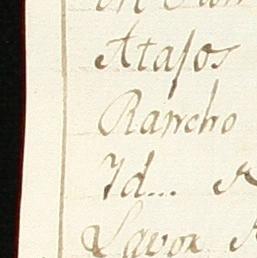 Atajos
Rancho
Id...
Lavor